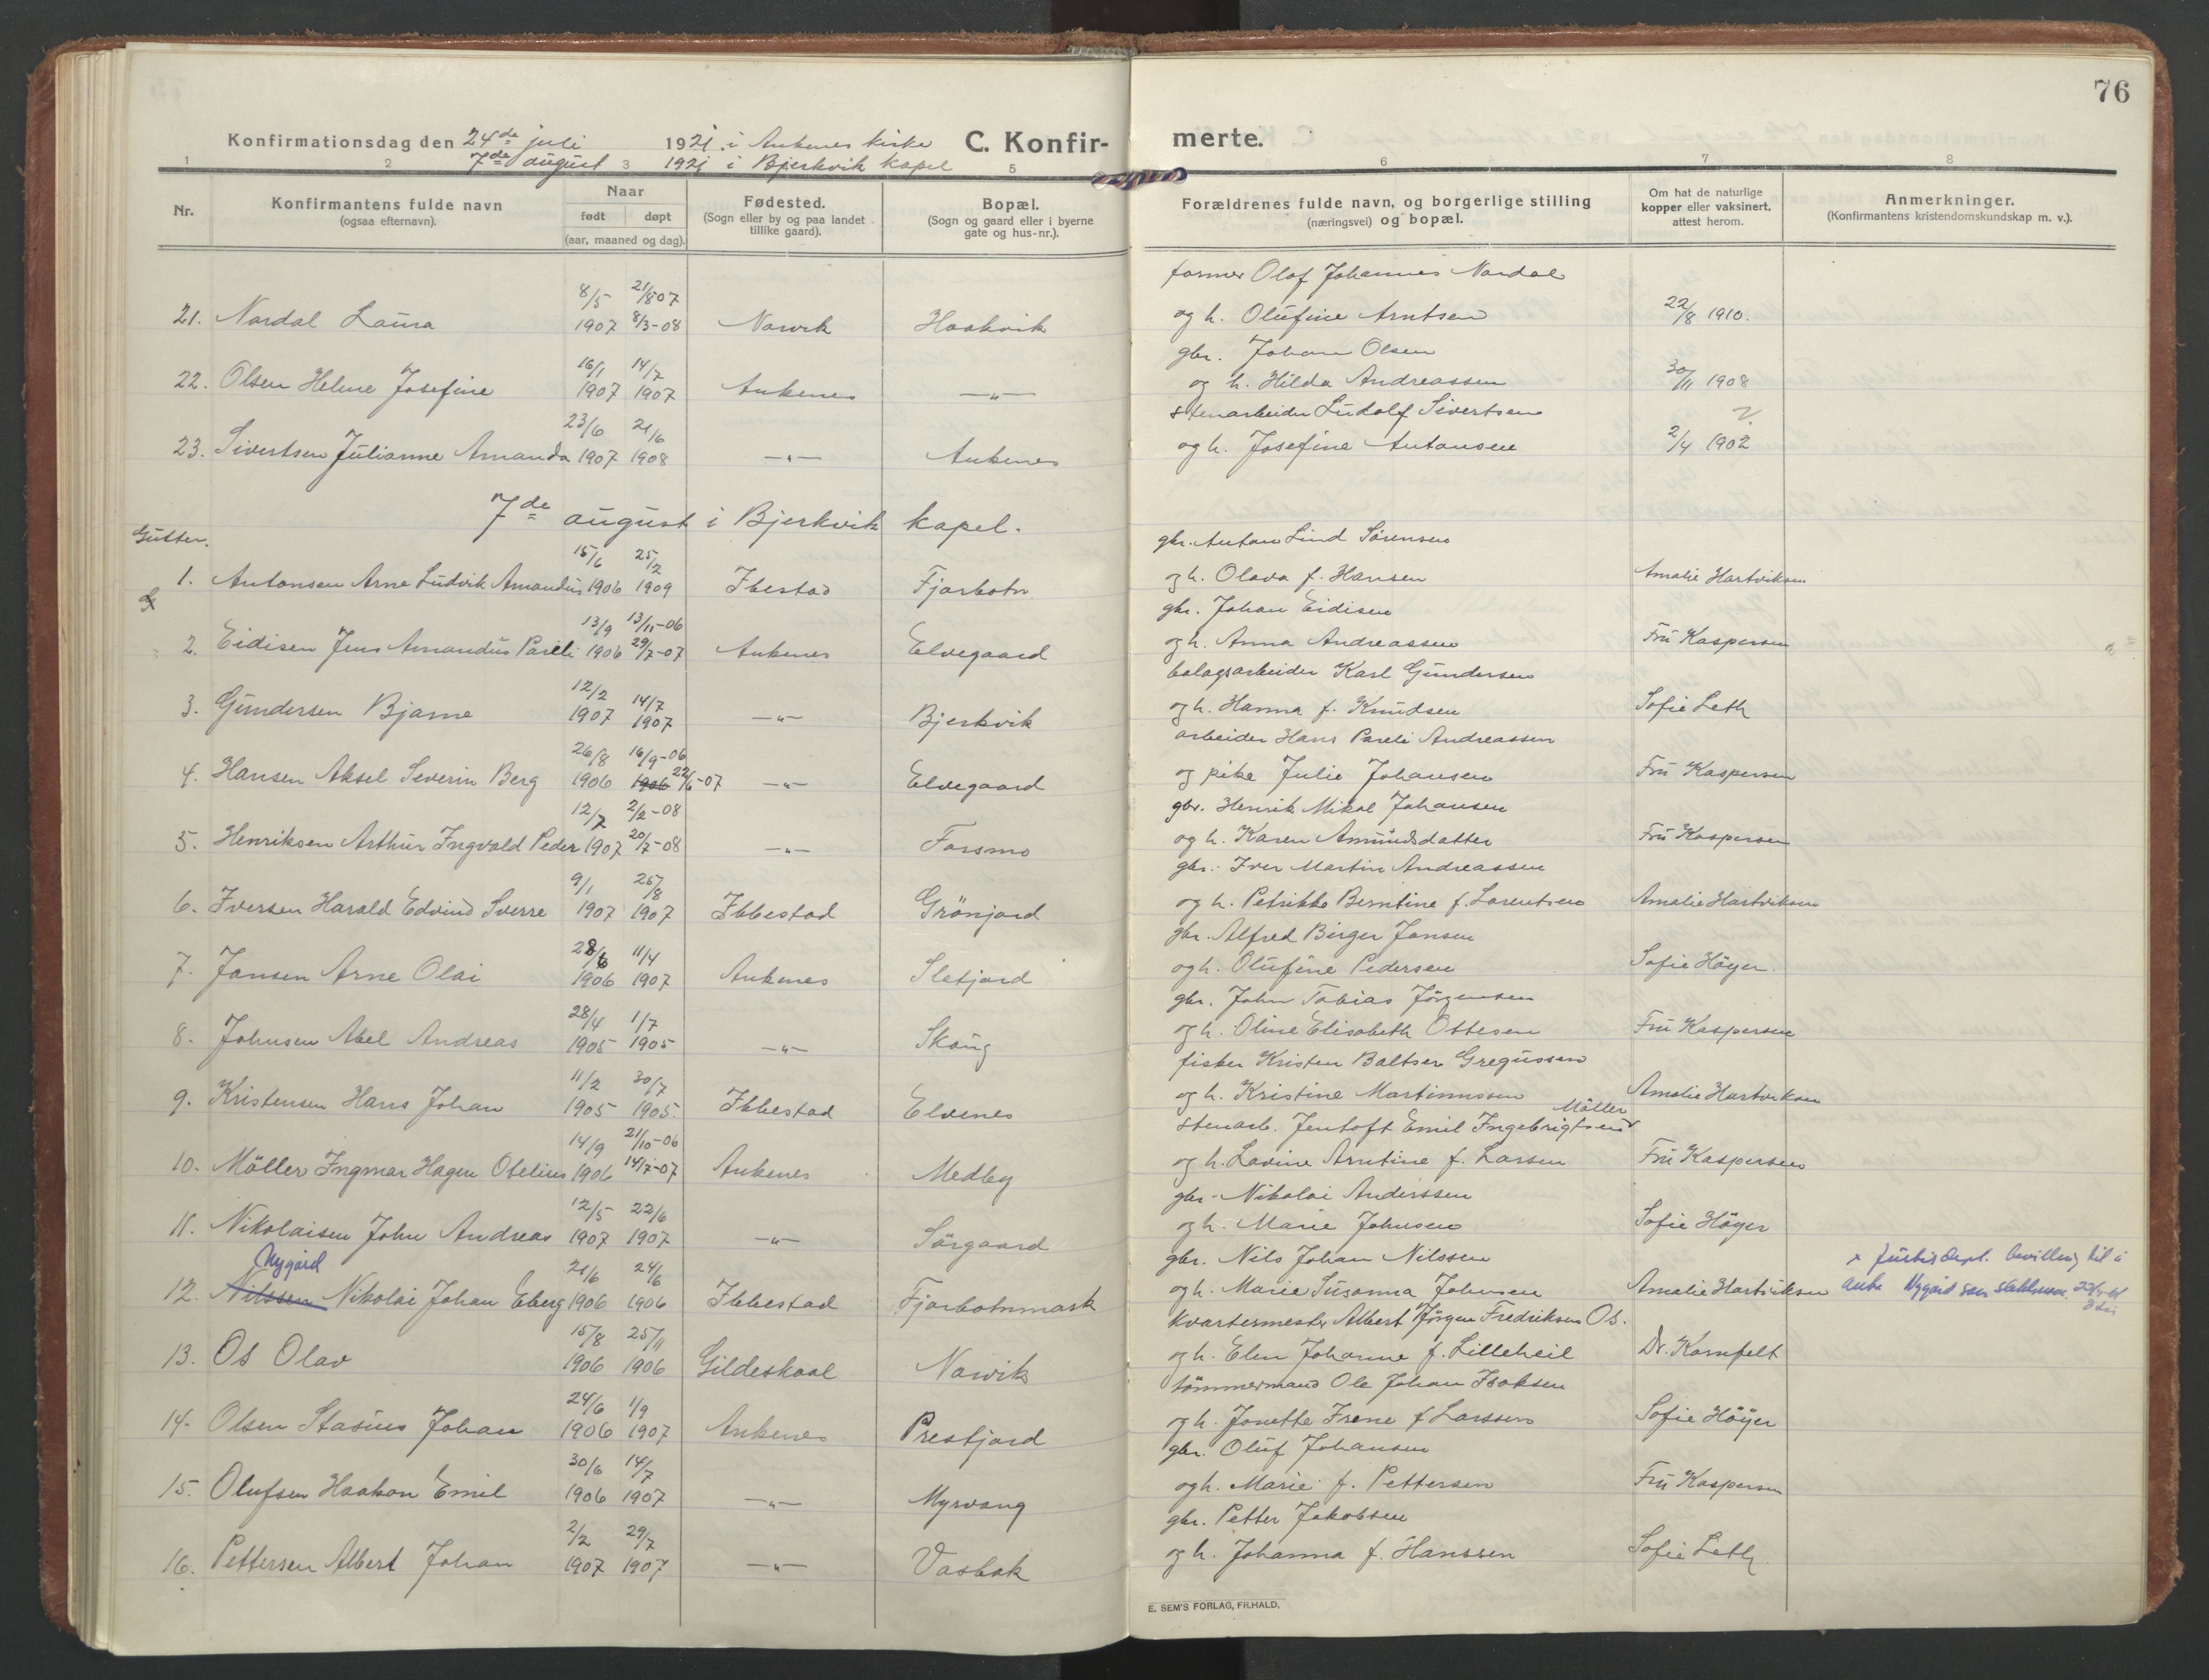 76
Konfirmationsdag den 24de juli 1921 i Ankenes kirke C. Konfirmerte.
7de august 1921 i Bjerkvik kapel
1 2 3 5 6 7 8
Nr. Konfirmantens fulde navn (ogsaa efternavn). Naar født døpt (aar, maaned og dag). Fødested. (Sogn eller by og paa landet tillike gaard). Bopæl. (Sogn og gaard eller i byerne gate og hus-nr.). Forældrenes fulde navn, og borgerlige stilling (næringsvei) og bopæl. Om hat de naturlige kopper eller vaksinert, attest herom. Anmerkninger. (Konfirmantens kristendomskundskap m. v.).
8/5 21/8 07 former Olaf Johannes Nordal
21. Nordal Laura 1907 8/3-08 Narvik Haakvik og h. Olufine Arntsen 22/8 1910.
16/1 14/7 gbr. Johan Olsen
22. Olsen Helene Josefine 1907 1907 Ankenes —"— og h. Hilda Andreassen 30/11 1908
23/6 21/6 stenarbeider Ludolf Sivertsen ?
23. Sivertsen Julianne Amanda 1907 1908 —"— Ankenes og h. Josefine Antonsen 2/4 1902
7de august i Bjerkvik kapel.
Gutter.
15/6 25/2 gbr. Anton Lind Sörensen
1. Antonsen Arne Ludvik Amandus 1906 1909 Ibestad Fjorbotn og h. Olava f. Hansen Amalie Hartviksen
13/9 13/11-06 gbr. Johan Eidisen
2. Eidisen Jens Amandus Pareli 1906 29/7-07 Ankenes Elvegaard og h. Anna Andreassen Fru Kaspersen
12/2 14/7 bolagsarbeider Karl Gundersen
3. Gundersen Bjarne 1907 1907 —"— Bjerkvik og h. Hanna f. Knudsen Sofie Leth
26/8 16/9-06 arbeider Hans Pareli Andreassen
4. Hansen Aksel Severin Berg 1906 1906 22/6-07 —"— Elvegaard og pike Julie Johansen Fru Kaspersen
12/7 2/2-08 gbr. Henrik Mikal Johansen
5. Henriksen Arthur Ingvald Peder 1907 20/7-08 —"— Forsmo og h. Karen Amundsdatter Fru Kaspersen
9/1 25/8 gbr. Iver Martin Andreassen
6. Iversen Harald Edvind Sverre 1907 1907 Ibbestad Grönjord og h. Petrikke Berntine f. Lorentsen Amalie Hartviksen
28/6 11/4 gbr. Alfred Birger Jansen
7. Jansen Arne Olai 1906 1907 Ankenes Sletjord og h. Olufine Pedersen Sofie Höyer.
28/4 1/7 gbr. John Tobias Jörgensen
8. Johnsen Abel Andreas 1905 1905 —"— Skoug og h. Oline Elisabeth Ottesen Fru Kaspersen
11/2 30/7 fisker Kristen Baltser Gregussen
9. Kristensen Hans Johan 1905 1905. Ibbestad Elvenes og h. Kristine Martinussen Amalie Hartviksen
14/9 21/10-06 stenarb. Jentoft Emil Ingebrigtsen Möller
10. Möller Ingmar Hagen Otelius 1906 14/7-07 Ankenes Medby og h. Lavine Arntine f. Larsen Fru Kaspersen
12/5 22/6 gbr. Nikolai Anderssen
11. Nikolaisen John Andreas 1907 1907 —"— Sörgaard og h. Marie Johnsen Sofie Höyer
Nygård 21/6 24/6 gbr. Nils Johan Nilssen x Justisdept. bevilling til å
12. Nilssen Nikolai Johan Eberg 1906 1906 Ibbestad Fjorbotnmark og h. Marie Susanna Johnsen Amalie Hartviksen anta Nygård som slektsnavn.
15/8 25/11 kvartermester Albert Jörgen Fredriksen Os.
13. Os Olav 1906 1906 Gildeskaal Narvik og h. Elen Johanne f. Lilleheil Dr. Kornfelt
24/6 1/9 tömmermand Ole Johan Isaksen
14. Olsen Stasius Johan 1906 1907 Ankenes Prestjord og h. Jonette Irene f. Larssen Sofie Höyer
30/6 14/7 gbr. Oluf Johansen
15. Olufsen Haakon Emil 1906 1907 —"— Myrvang og h. Marie f. Pettersen Fru Kaspersen
2/2 29/7 gbr. Petter Jakobsen
16. Pettersen Albert Johan 1907 1907 —"— Vasbak og h. Johanna f. Hanssen Sofie Leth.
E. SEM'S FORLAG, FR.HALD.